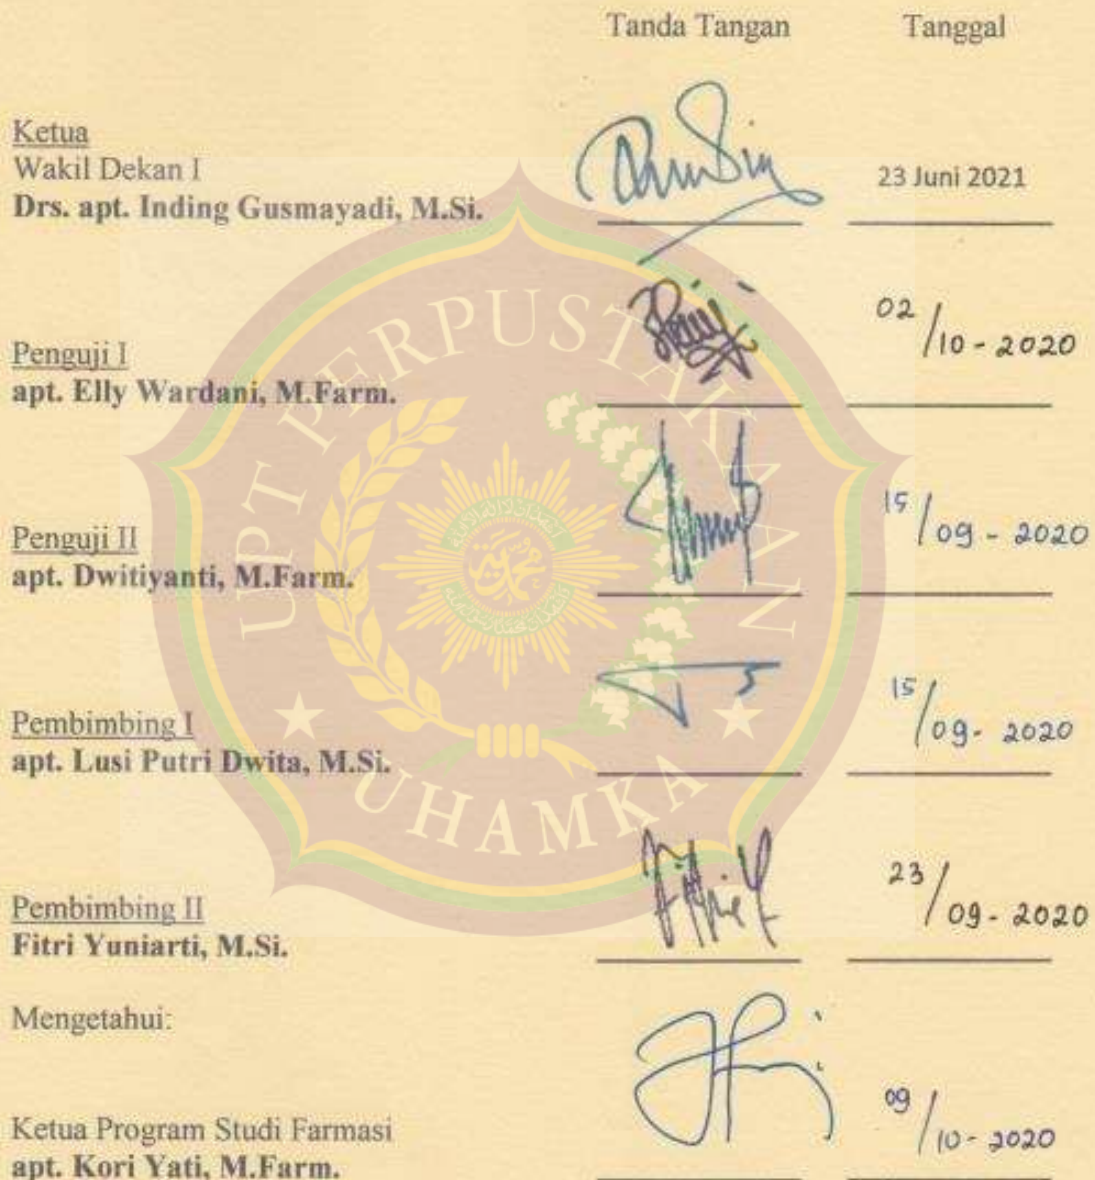 Tanda Tangan Tanggal
Ketua
Wakil Dekan I
Drs. apt. Inding Gusmayadi, M.Si.
23 Juni 2021
Penguji I
apt. Elly Wardani, M.Farm.
02/10-2020
Penguji II
apt. Dwitiyanti, M.Farm.
15/09-2020
Pembimbing I
apt. Lusi Putri Dwita, M.Si.
15/09-2020
Pembimbing II
Fitri Yuniarti, M.Si.
23/09-2020
Mengetahui:
Ketua Program Studi Farmasi
apt. Kori Yati, M.Farm.
09/10-2020
UPT PERPUSTAKAAN
UHAMKA